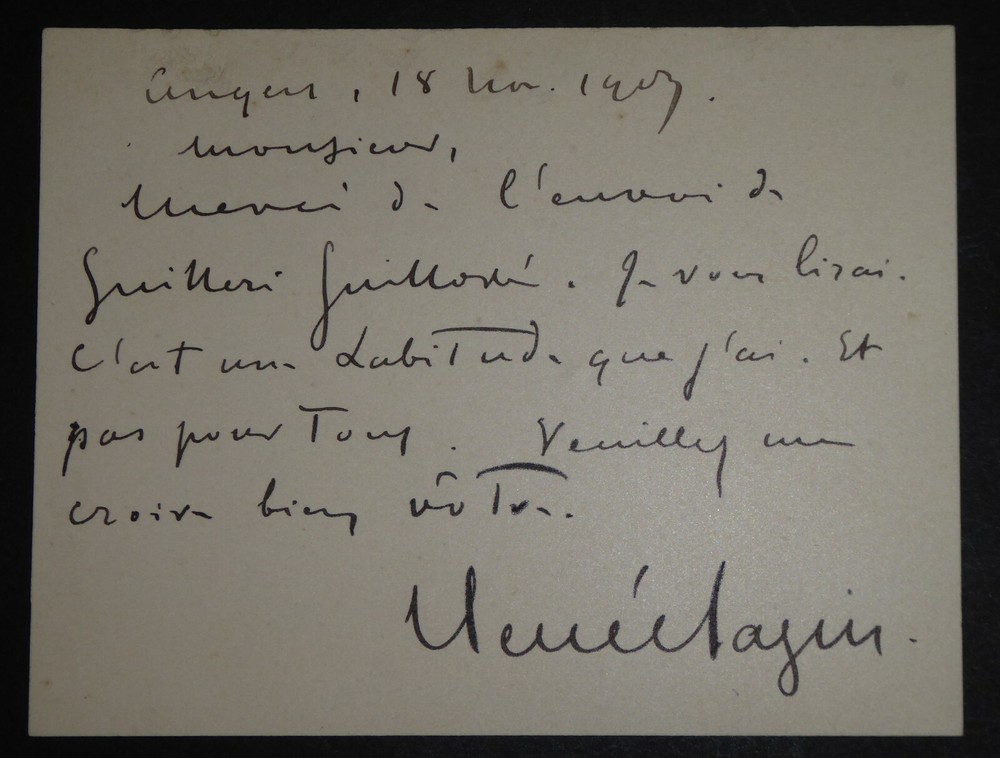 Angers, 18 Nov. 1907.
Monsieur,
Merci de l'envoi de
Guilleri Guilloré. Je vous lirai.
C'est une habitude que j'ai. Et
pas pour tous. Veuillez me
croire bien vôtre.
René Bazin.